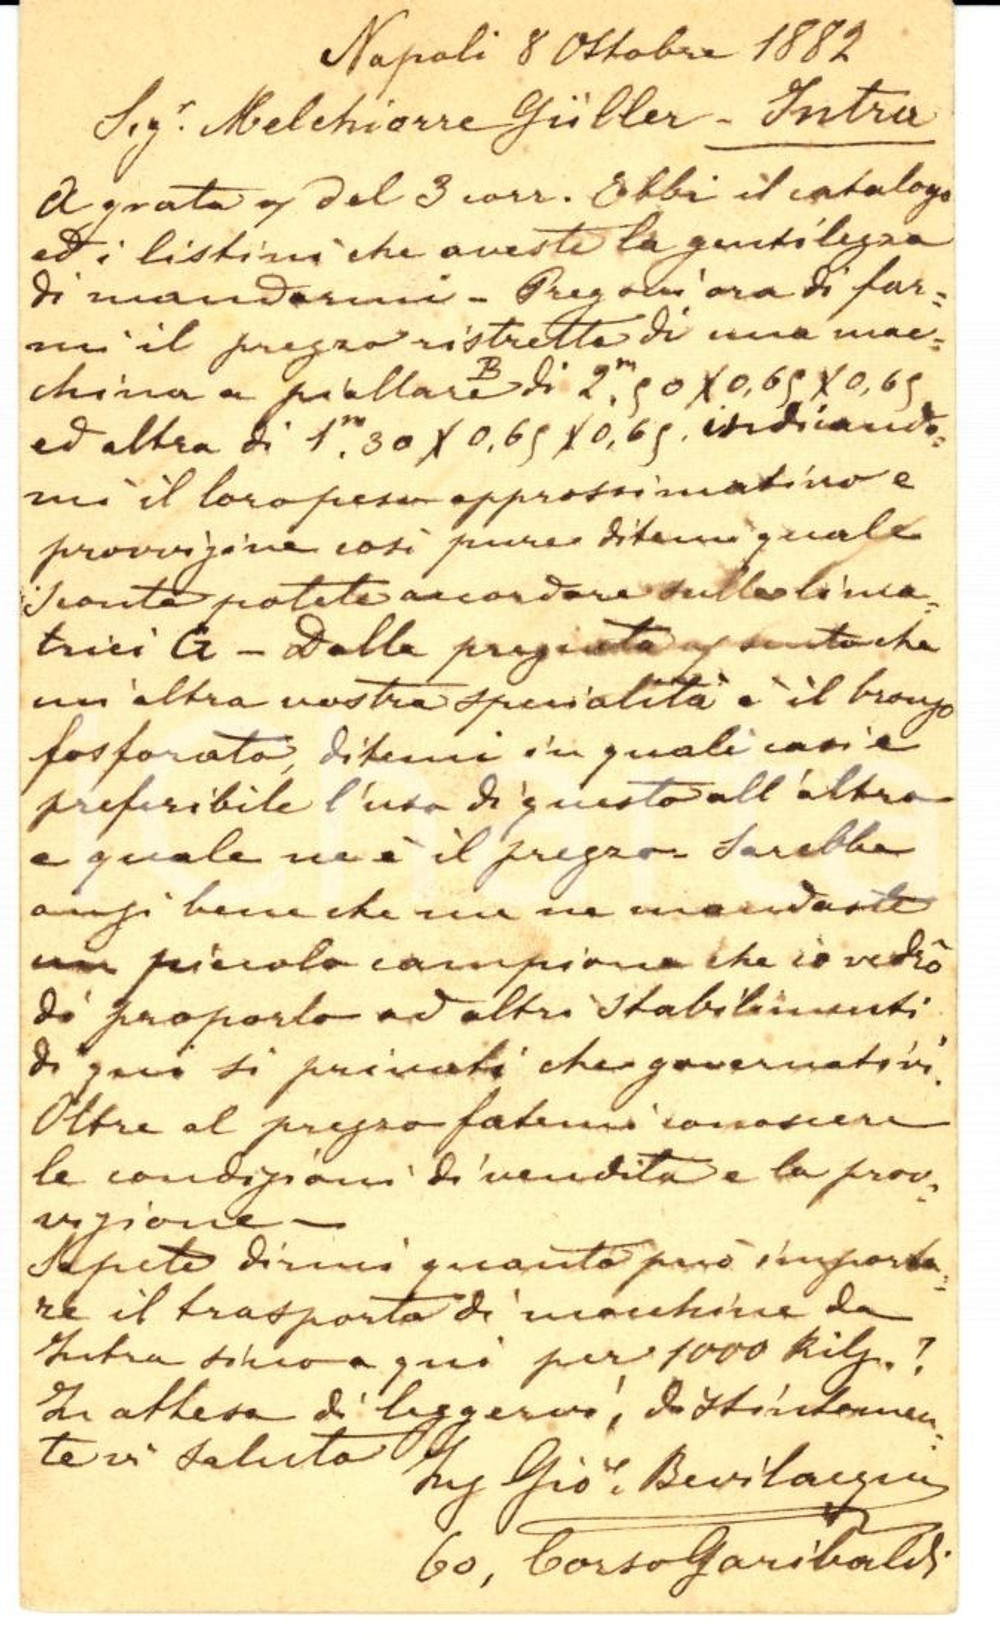 Napoli 8 Ottobre 1882
Sigr. Melchiorre Güller - Intra
A grata del 3 corr. Ebbi il catalogo
ed i listini che aveste la gentilezza
di mandarmi - Pregovi ora di far=
mi il prezzo ristretto di una mac=
china a piallare B di 2.m50 X 0,65 X 0,65
ed altra di 1.m30 X 0,65 X 0,65. indicando=
mi il loro peso approssimativo e
provvigione così pure ditemi quale
sconto potete accordare sulle lima=
trici G - Dalla pregiata sento che
un'altra vostra specialità è il bronzo
fosforato, ditemi in quali casi è
preferibile l'uso di questo all'altro
e quale ne è il prezzo - Sarebbe
anzi bene che me ne mandaste
un piccolo campione che io vedrò
di proporlo ad altri stabilimenti
di qui sì privati che governativi.
Oltre al prezzo fatemi conoscere
le condizioni di vendita e la prov=
vigione -
Sapete dirmi quanto può importa=
re il trasporto di macchine da
Intra sino a qui per 1000 Kilg.?
In attesa di leggervi, distintamen=
te vi saluto
Ing Gio. Bevilacqua
60, Corso Garibaldi